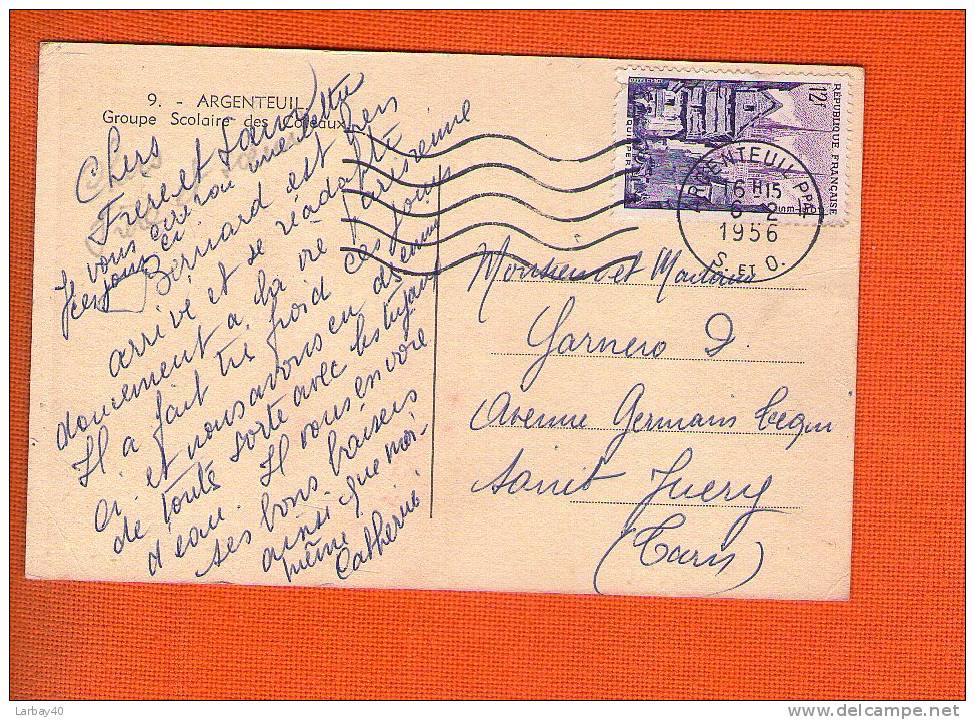 9. - ARGENTEUIL
Groupe Scolaire des Coteaux
Chers
Frere et
Je vous écrirai
ces jours ci
Bernard est bien
arrivé et se réadapte
doucement a la vie Parisienne
Il a fait tré froid ces jours
ci et nous avons eu des ennuis
de toute sorte avec les tuyaux
d'eau. Il vous envoie
ses bons baisers
ainsi que moi-
même
Catherine
REPUBLIQUE FRANÇAISE
12F
QUIMPER
ARGENTEUIL PPAL
16 H15
6-2
1956
S. ET O.
Monsieur et Madame
Garnero D.
Avenue Germans
Saint Juery
(Tarn)
Larbay40
delcampe.net